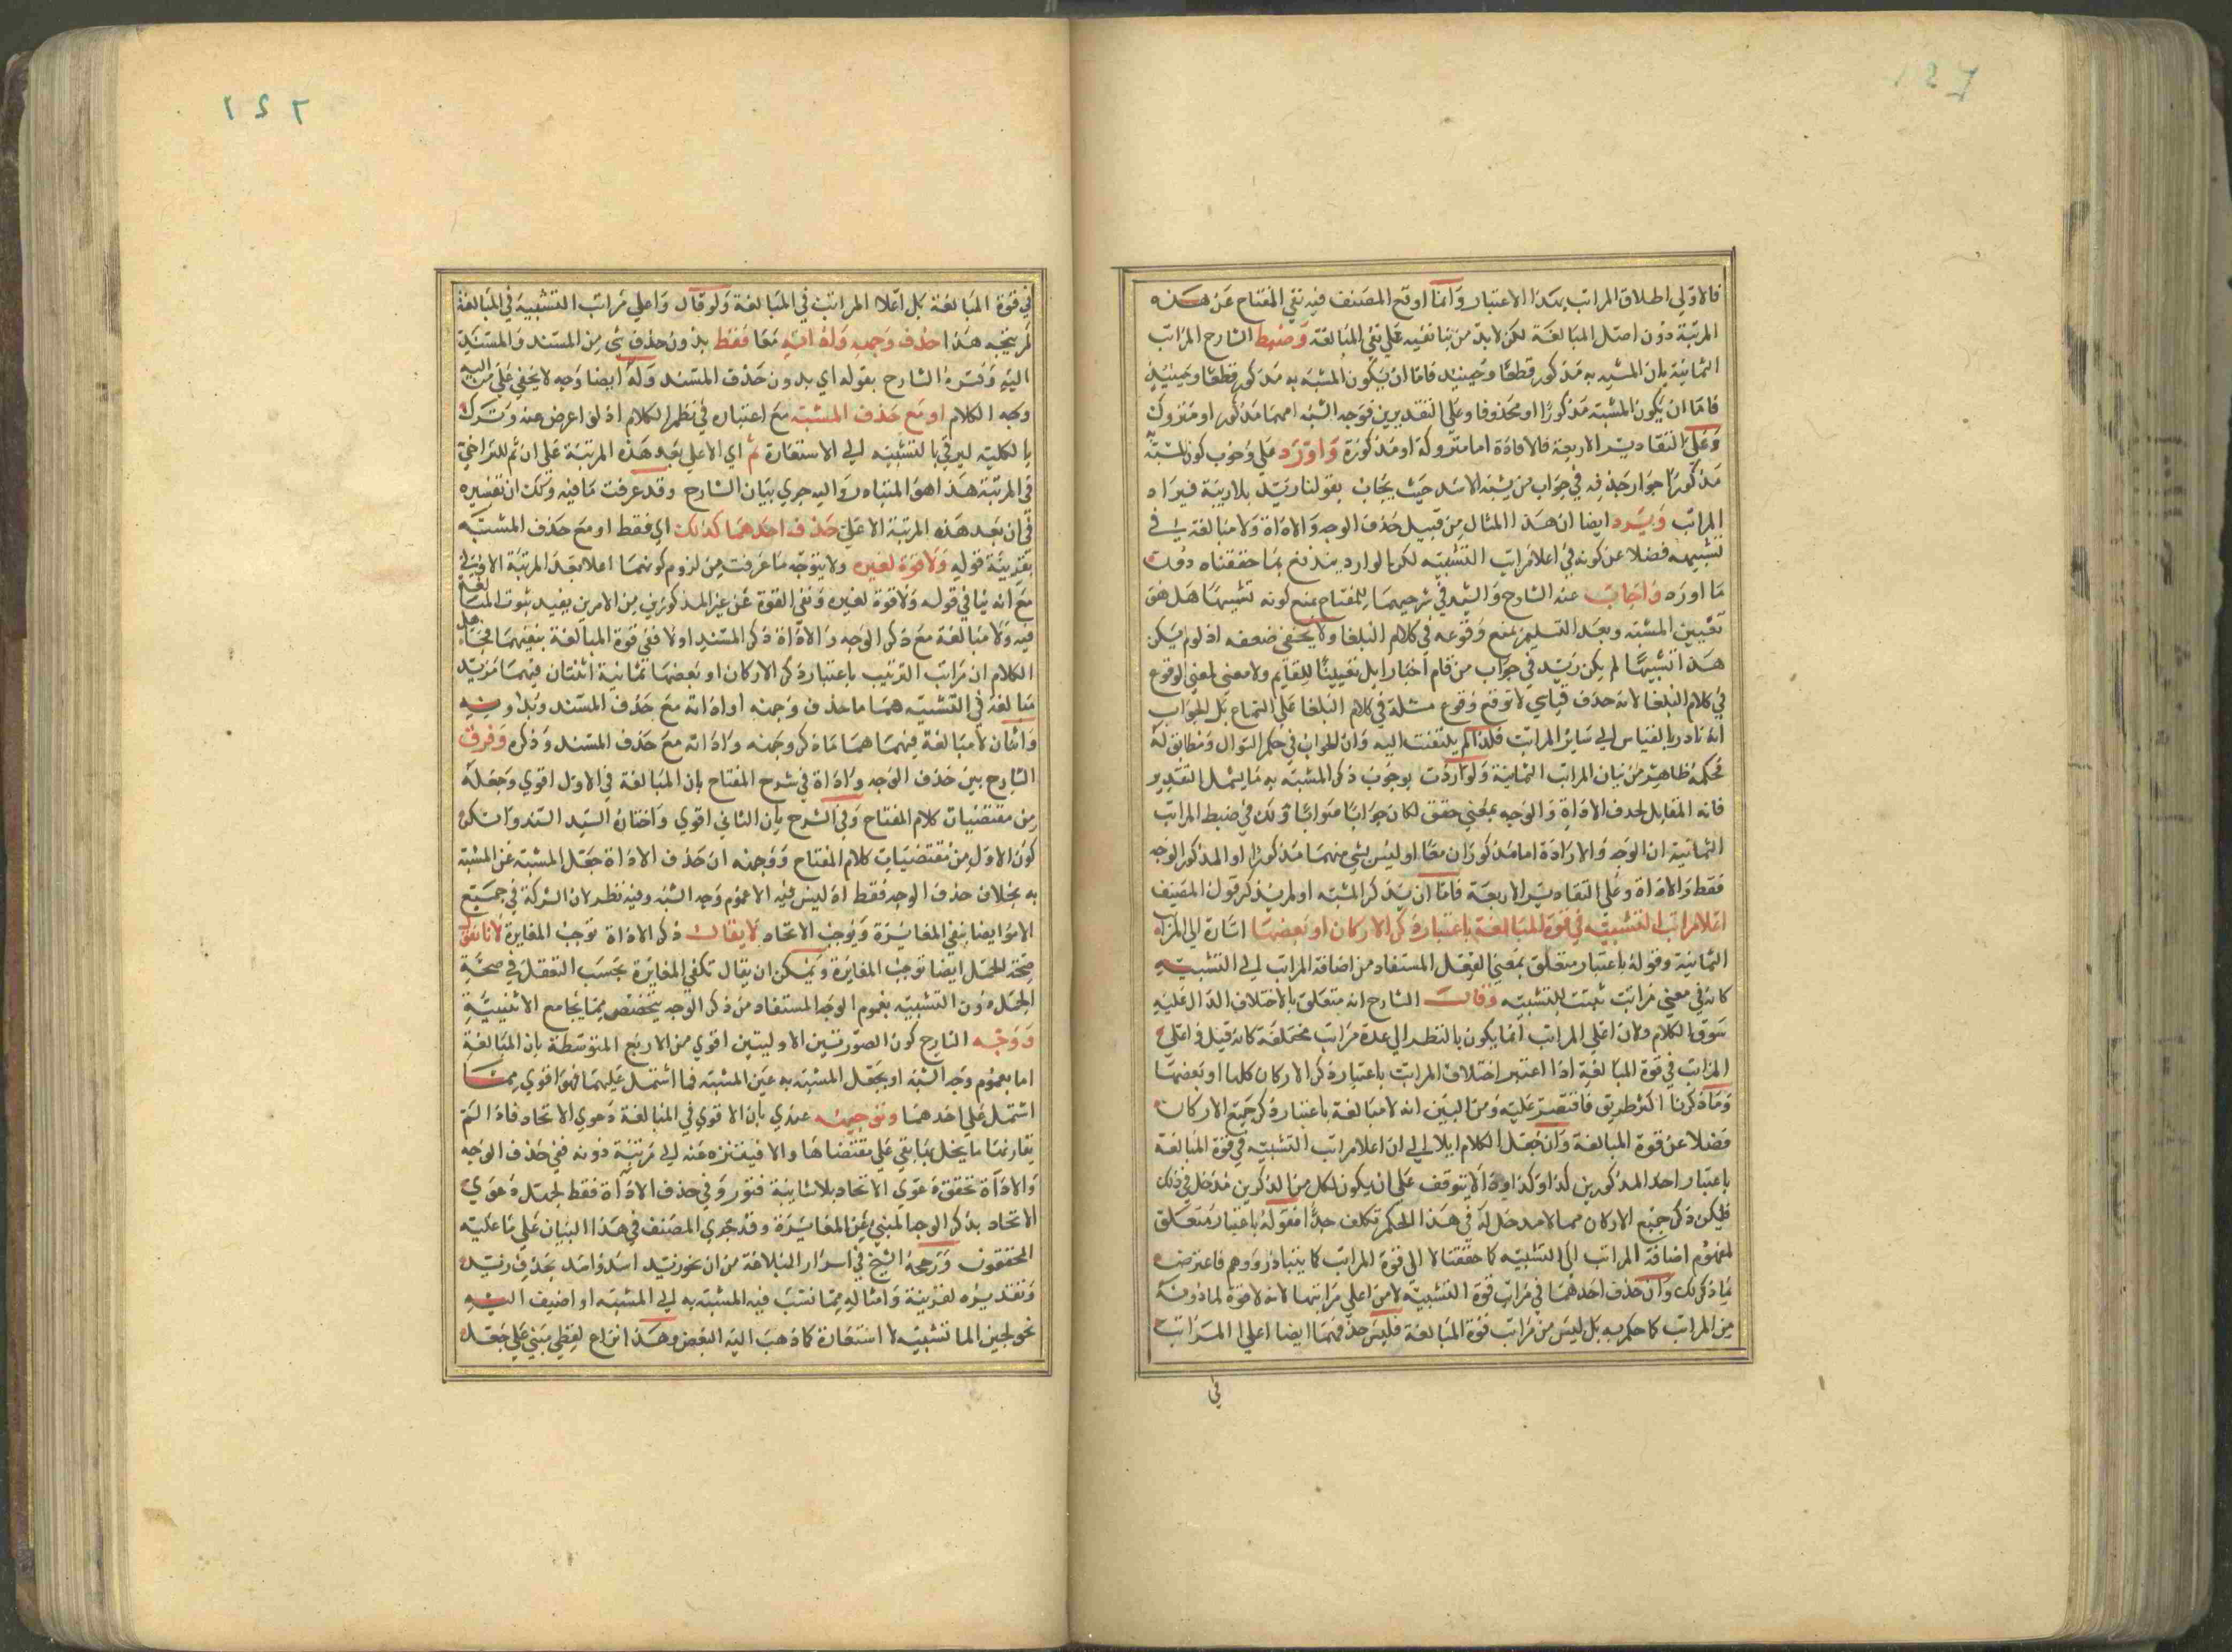 فالاولى اطلاق المراتب بهذا الاعتبار وانما اوقع المصنف فيه نفي المفتاح عن هذه
المرتبة دون اصل المبالغة لكن لا بد من بنا نفيه على نفي المبالغة وضبط الشارح المراتب
الثمانية بان المشبه به مذكور قطعا وحينيذ فاما ان يكون المشبه به مذكور قطعا وحينيذ
فاما ان يكون المشبه مذكورا او محذوفا وعلى التقديرين فوجه الشبه اما مذكور او متروك
وعلى التقادير الاربعة فالاداة اما متروكة او مذكورة واورد على وجوب كون المشبه به
مذكورا جواز حذفه في جواب من يشبه الاسد حيث يجاب بقولنا زيد بلا ريبة فيزاد
المراتب ويرد ايضا ان هذا المثال من قبيل حذف الوجه والاداة ولا مبالغة في
تشبيهه فضلا عن كونه في اعلا مراتب التشبيه لكن الوارد يندفع بما حققناه دون
ما اورد واجاب عنه الشارح والسيد في شرحيهما للمفتاح بمنع كونه تشبيها هل هو
تعيين المشبه وبعد التسليم بمنع وقوعه في كلام البلغا ولا يخفى ضعفه اذ لو لم يكن
هذا تشبيها لم يكن زيد في جواب من قام اخبارا بل تعيينا للقايم ولا معنى لمعنى الوقوع
في كلام البلغا لانه حذف قياسي لا توقع وقوع مثله في كلام البلغا على السماع بل الجواب
انه نادر بالقياس الى ساير المراتب فلذا لم يلتفت اليه وان الجواب في حكم السوال ومطابق له
فحكمه ظاهر من بيان المراتب الثمانية ولو اردت بوجوب ذكر المشبه به ما يشمل التقدير
فانه المقابل لحذف الاداة والوجه بمعنى حقق لكان جوابا صوابا ولك في ضبط المراتب
الثمانية ان الوجه والاداة اما مذكوران معا او ليس شي منهما مذكورا او المذكور الوجه
فقط والاداة وعلى التقادير الاربعة فاما ان يذكر المشبه او لم يذكر قول المصنف
اعلا مراتب التشبيه في قوة المبالغة باعتبار ذكر الاركان او بعضها اشارة الى المراتب
الثمانية وقوله باعتبار متعلق بمعنى الفعل المستفاد من اضافة المراتب الى التشبيه
كانه في معنى مراتب ثبتت للتشبيه وقال الشارح انه متعلق بالاختلاف الدال عليه
سوق الكلام ولان اعلى المراتب انما يكون بالنظر الى عدة مراتب مختلفة كانه قيل واعلى
المراتب في قوة المبالغة اذا اعتبر اختلاف المراتب باعتبار ذكر الاركان كلها او بعضها
وما ذكرنا اكثر طريق فاقتصر عليه ومن البين انه لا مبالغة باعتبار ذكر جميع الاركان
فضلا عن قوة المبالغة وان جعل الكلام ايلا الى ان اعلا مراتب التشبيه في قوة المبالغة
باعتبار احد المذكورين كذا وكذا وذا لا يتوقف على ان يكون لكل من المذكورين مدخل في ذلك
فليكن ذكر جميع الاركان مما لا مدخل له في هذا الحكم تكلف جدا فقوله باعتبار متعلق
لمفهوم اضافة المراتب الى التشبيه كما حققنا لا الى قوة المراتب كما يتبادر ووهم فاعترض
بما ذكر لك وان حذف احدهما في مراتب قوة التشبيه لا من اعلى مراتبها لانه لا قوة لما دونه
من المراتب كما حكم به بل ليس من مراتب قوة المبالغة فليس حذفهما ايضا اعلى المراتب
في
١٤٢
في قوة المبالغة بل اعلا المراتب في المبالغة ولو قال واعلى مراتب التشبيه في المبالغة
لم يتجه هذا حذف وجهه واداته معا فقط بدون حذف شي من المسند والمسند
اليه وفسره الشارح بقوله اي بدون حذف المسند وله ايضا وجه لا يخفى على من اليه
وجه الكلام او مع حذف المشبه مع اعتباره في نظم الكلام اذ لو اعرض عنه وترك
بالكلية ليرقى بالتشبيه الى الاستعارة ثم اي الاعلى بعد هذه المرتبة على ان ثم للتراخي
في المرتبة هذا هو المتبادر واليه جرى بيان الشارح وقد عرفت ما فيه ولك ان تفسيره
في ان بعد هذه المرتبة الاعلى حذف احدهما كذلك اي فقط او مع حذف المشبه
بقرينة قوله ولا قوة لغيره ولا يتوجه ما عرفت من لزوم كونهما اعلا بعد المرتبة الاولى
مع انه ينافي قوله ولا قوة لغيره ونفي القوة عن غير المذكورين من الامرين يفيد ثبوت المبالغة
فيه ولا مبالغة مع ذكر الوجه والاداة ذكر المسند او لا ففي قوة المبالغة بنفيهما فحاصل
الكلام ان مراتب الترتيب باعتبار ذكر الاركان او بعضها ثمانية اثنتان فيهما مزيد
مبالغة في التشبيه هما ما حذف وجهه او اداته مع حذف المسند وبدونه
واثنان لا مبالغة فيهما هما ما ذكر وجهه واداته مع حذف المسند وذكره وفرق
الشارح بين حذف الوجه واداة في شرح المفتاح بان المبالغة في الاول اقوى وجعله
من مقتضيات كلام المفتاح وفي الشرح بان الثاني اقوى واختار السيد السند وانكر
كون الاول من مقتضيات كلام المفتاح ووجهه ان حذف الاداة جعل المشبه عن المشبه
به بخلاف حذف الوجه فقط اذ ليس فيه الا عموم وجه الشبه وفيه نظر لان الشركة في جميع
الامور ايضا ينفي المغايرة ويوجب الاتحاد لا يقال ذكر الاداة توجب المغايرة لانا نقول
صحة الحمل ايضا توجب المغايرة ويمكن ان يقال تكفي المغايرة بحسب التعقل في صحة
الحمل دون التشبيه بعموم الوجه المستفاد من ذكر الوجه يختص بما يجامع الاثنينية
ووجه الشارح كون الصورتين الاوليتين اقوى من الاربع المتوسطة بان المبالغة
اما بعموم وجه الشبه او بجعل المشبه به عين المشبه فما اشتمل عليهما فهو اقوى مما
اشتمل على احدهما وتوجيهه عندي بان الاقوى في المبالغة دعوى الاتحاد فاذا لم
يقارنها ما يخل بها بقي على مقتضاها والا فيتنزه عنه الى مرتبة دونه ففي حذف الوجه
والاداة تحقق دعوى الاتحاد بلا شايبة فتور وفي حذف الاداة فقط لجمل دعوى
الاتحاد بذكر الوجه المبني عن المغايرة وقد جرى المصنف في هذا البيان على ما عليه
المحققون ورجحه الشيخ في اسرار البلاغة من ان نحو زيد اسد واسد بحذف زيد
وتقديره لقرينة وامثاله مما نسب فيه المشبه به الى المشبه او اضيف اليه
نحو لجين الما تشبيه لا استعارة كما ذهب اليه البعض وهذا نزاع لفظي مبني على جعل